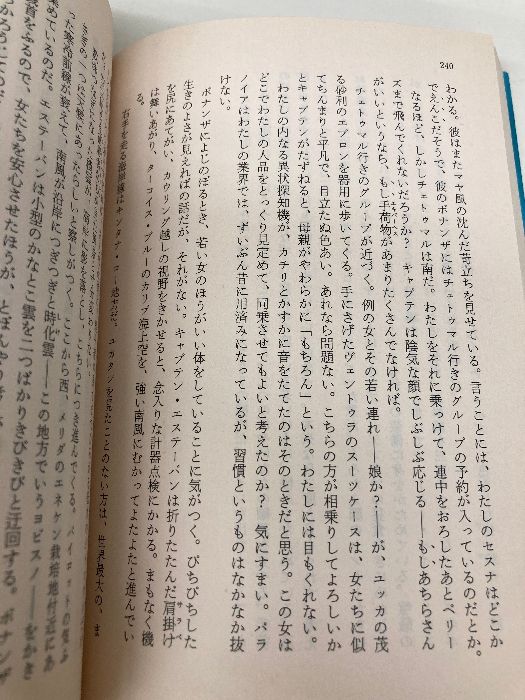 240
わかる。彼はまたマヤ風の沈んだ苛立ちを見せている。言うことには、わたしのセスナはどこか
でえんこだそうで、彼のボナンザにはチェトゥマル行きのグループの予約が入っているのだとか。
なるほど、しかしチェトゥマルは南だ。わたしをそれに乗っけて、連中をおろしたあとベリー
ズまで飛んでくれないだろうか？　キャプテンは陰気な顔でしぶしぶ応じる――もしあちらさん
がいいと言ったなら、もし手荷物があまりたくさんでなければ。
チェトゥマル行きのグループが近づく。例の女とその若い連れ――娘か？――が、ユッカの茂
る砂利のエプロンを器用に歩いてくる。手にさげたヴェントゥラのスーツケースは、女たちに似
てちんまりと平凡で、目立たぬ色あい。あれなら問題ない。こちらの方が相乗りしてよろしいか
とキャプテンがたずねると、母親がやわらかに「もちろん」という。わたしには目もくれない。
わたしの内なる異状探知機が、カチリとかすかに音をたてたのはそのときだと思う。この女は
どこでわたしの人品をとっくり見定めて、同乗させてもよいと考えたのか？　気にすまい。パラ
ノイアはわたしの業界では、ずいぶん昔に用済みになっているが、習慣というものはなかなか抜
けない。
ボナンザによじのぼるとき、若い女のほうがいい体をしていることに気がつく。ぴちぴちした
生きのよさが見えればの話だが、それがない。キャプテン・エステーバンは折りたたんだ肩掛け
サラペ
を尻にあてがい、カウリング越しの視野をきかせると、念入りな計器点検にかかる。まもなく機
は舞いあがり、ターコイス・ブルーのカリブ海上空を、強い南風にむかってよたよたと進んでい
る。
右手を走る海岸線はキンタナ・ロー
ユカタンを見たことのない方は、世界最大の、ま
こちらにつき進んでくる。
ここから西、メリダのエネケン栽培地付近に
った寒冷前線が控えて、南風が沿岸につぎつぎと時化雲――この地方でいうヨビスノ――をかき
集めているのだ。エステーバは小型のかなとこ雲を二つばかりきびきびと迂回する。ボナンザ
ふるので、女たちを安心させたほうが、とぼんやり